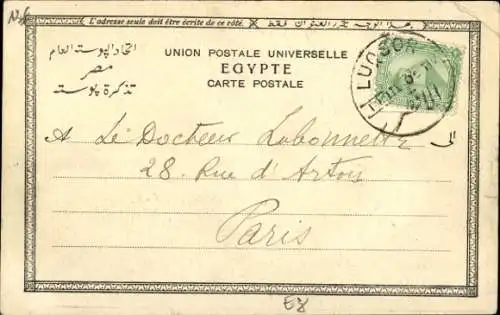 L'adresse seule doit être écrite de ce côté.
اتحاد البوسته العام
مصر
تذكرة بوسته
UNION POSTALE UNIVERSELLE
EGYPTE
CARTE POSTALE
LUQSOR
A Le Docteur Labonnette
28 Rue d'Artois
Paris